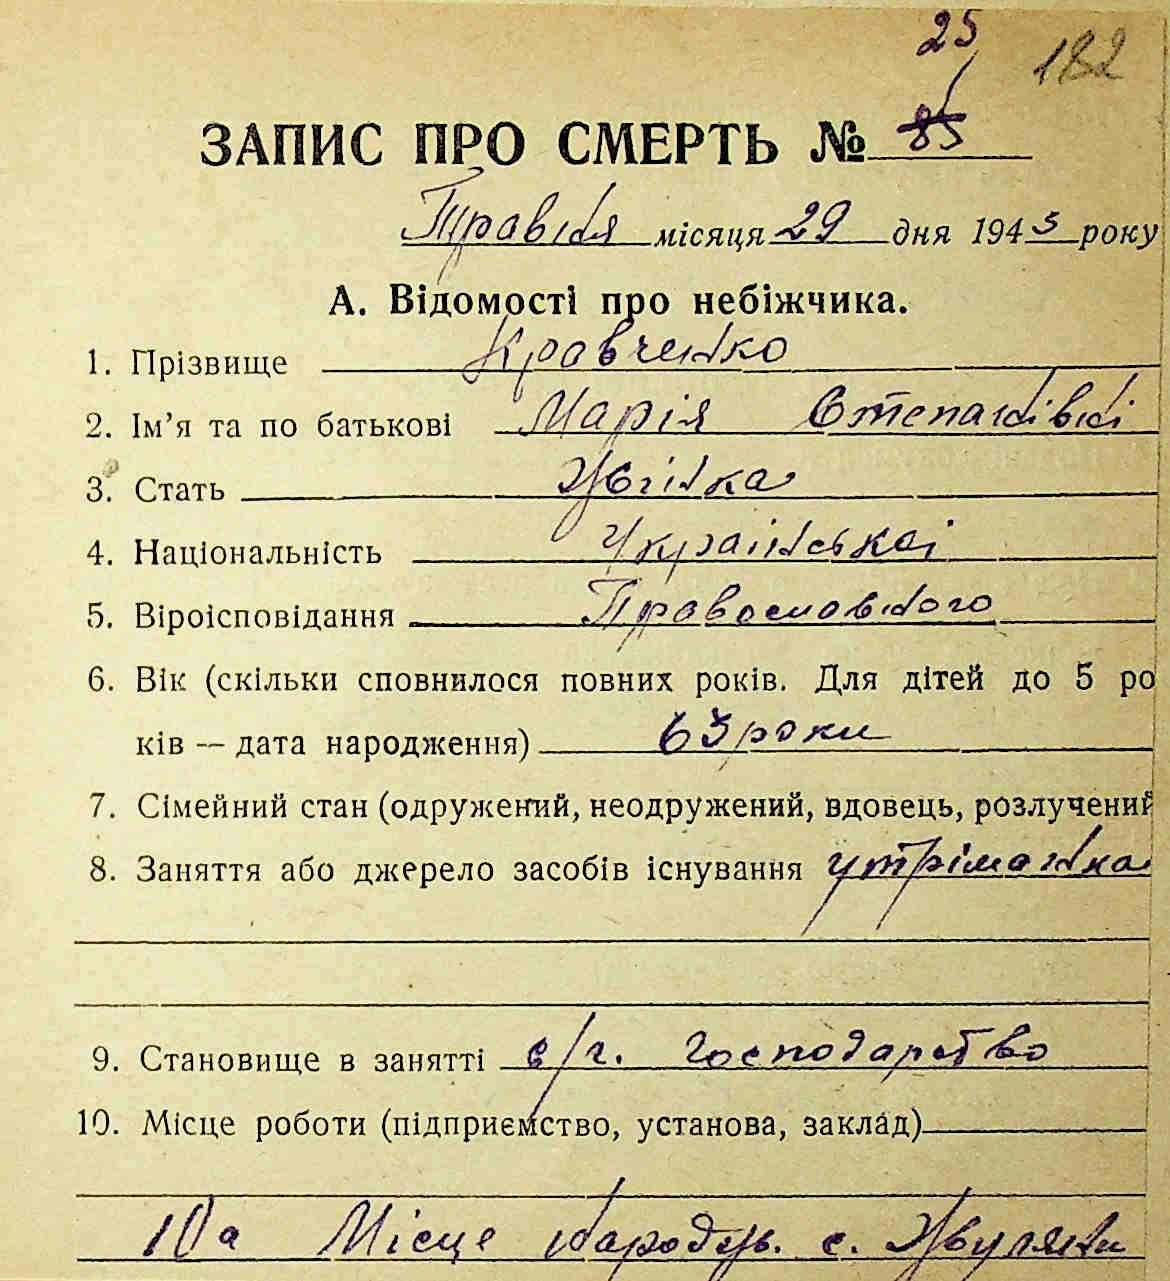 25
182
ЗАПИС ПРО СМЕРТЬ № 85
Травня місяця 29 дня 1943 року
А. Відомості про небіжчика.
1. Прізвище Кравченко
2. Ім'я та по батькові Марія Степанівні
3. Стать Жінка
4. Національність Українськаі
5. Віроісповідання Православного
6. Вік (скільки сповнилося повних років. Для дітей до 5 ро
ків — дата народження) 63 роки
7. Сімейний стан (одружений, неодружений, вдовець, розлучений
8. Заняття або джерело засобів існування утріманка
9. Становище в занятті с/г. господарство
10. Місце роботи (підприємство, установа, заклад)
10а Місце народж. с.